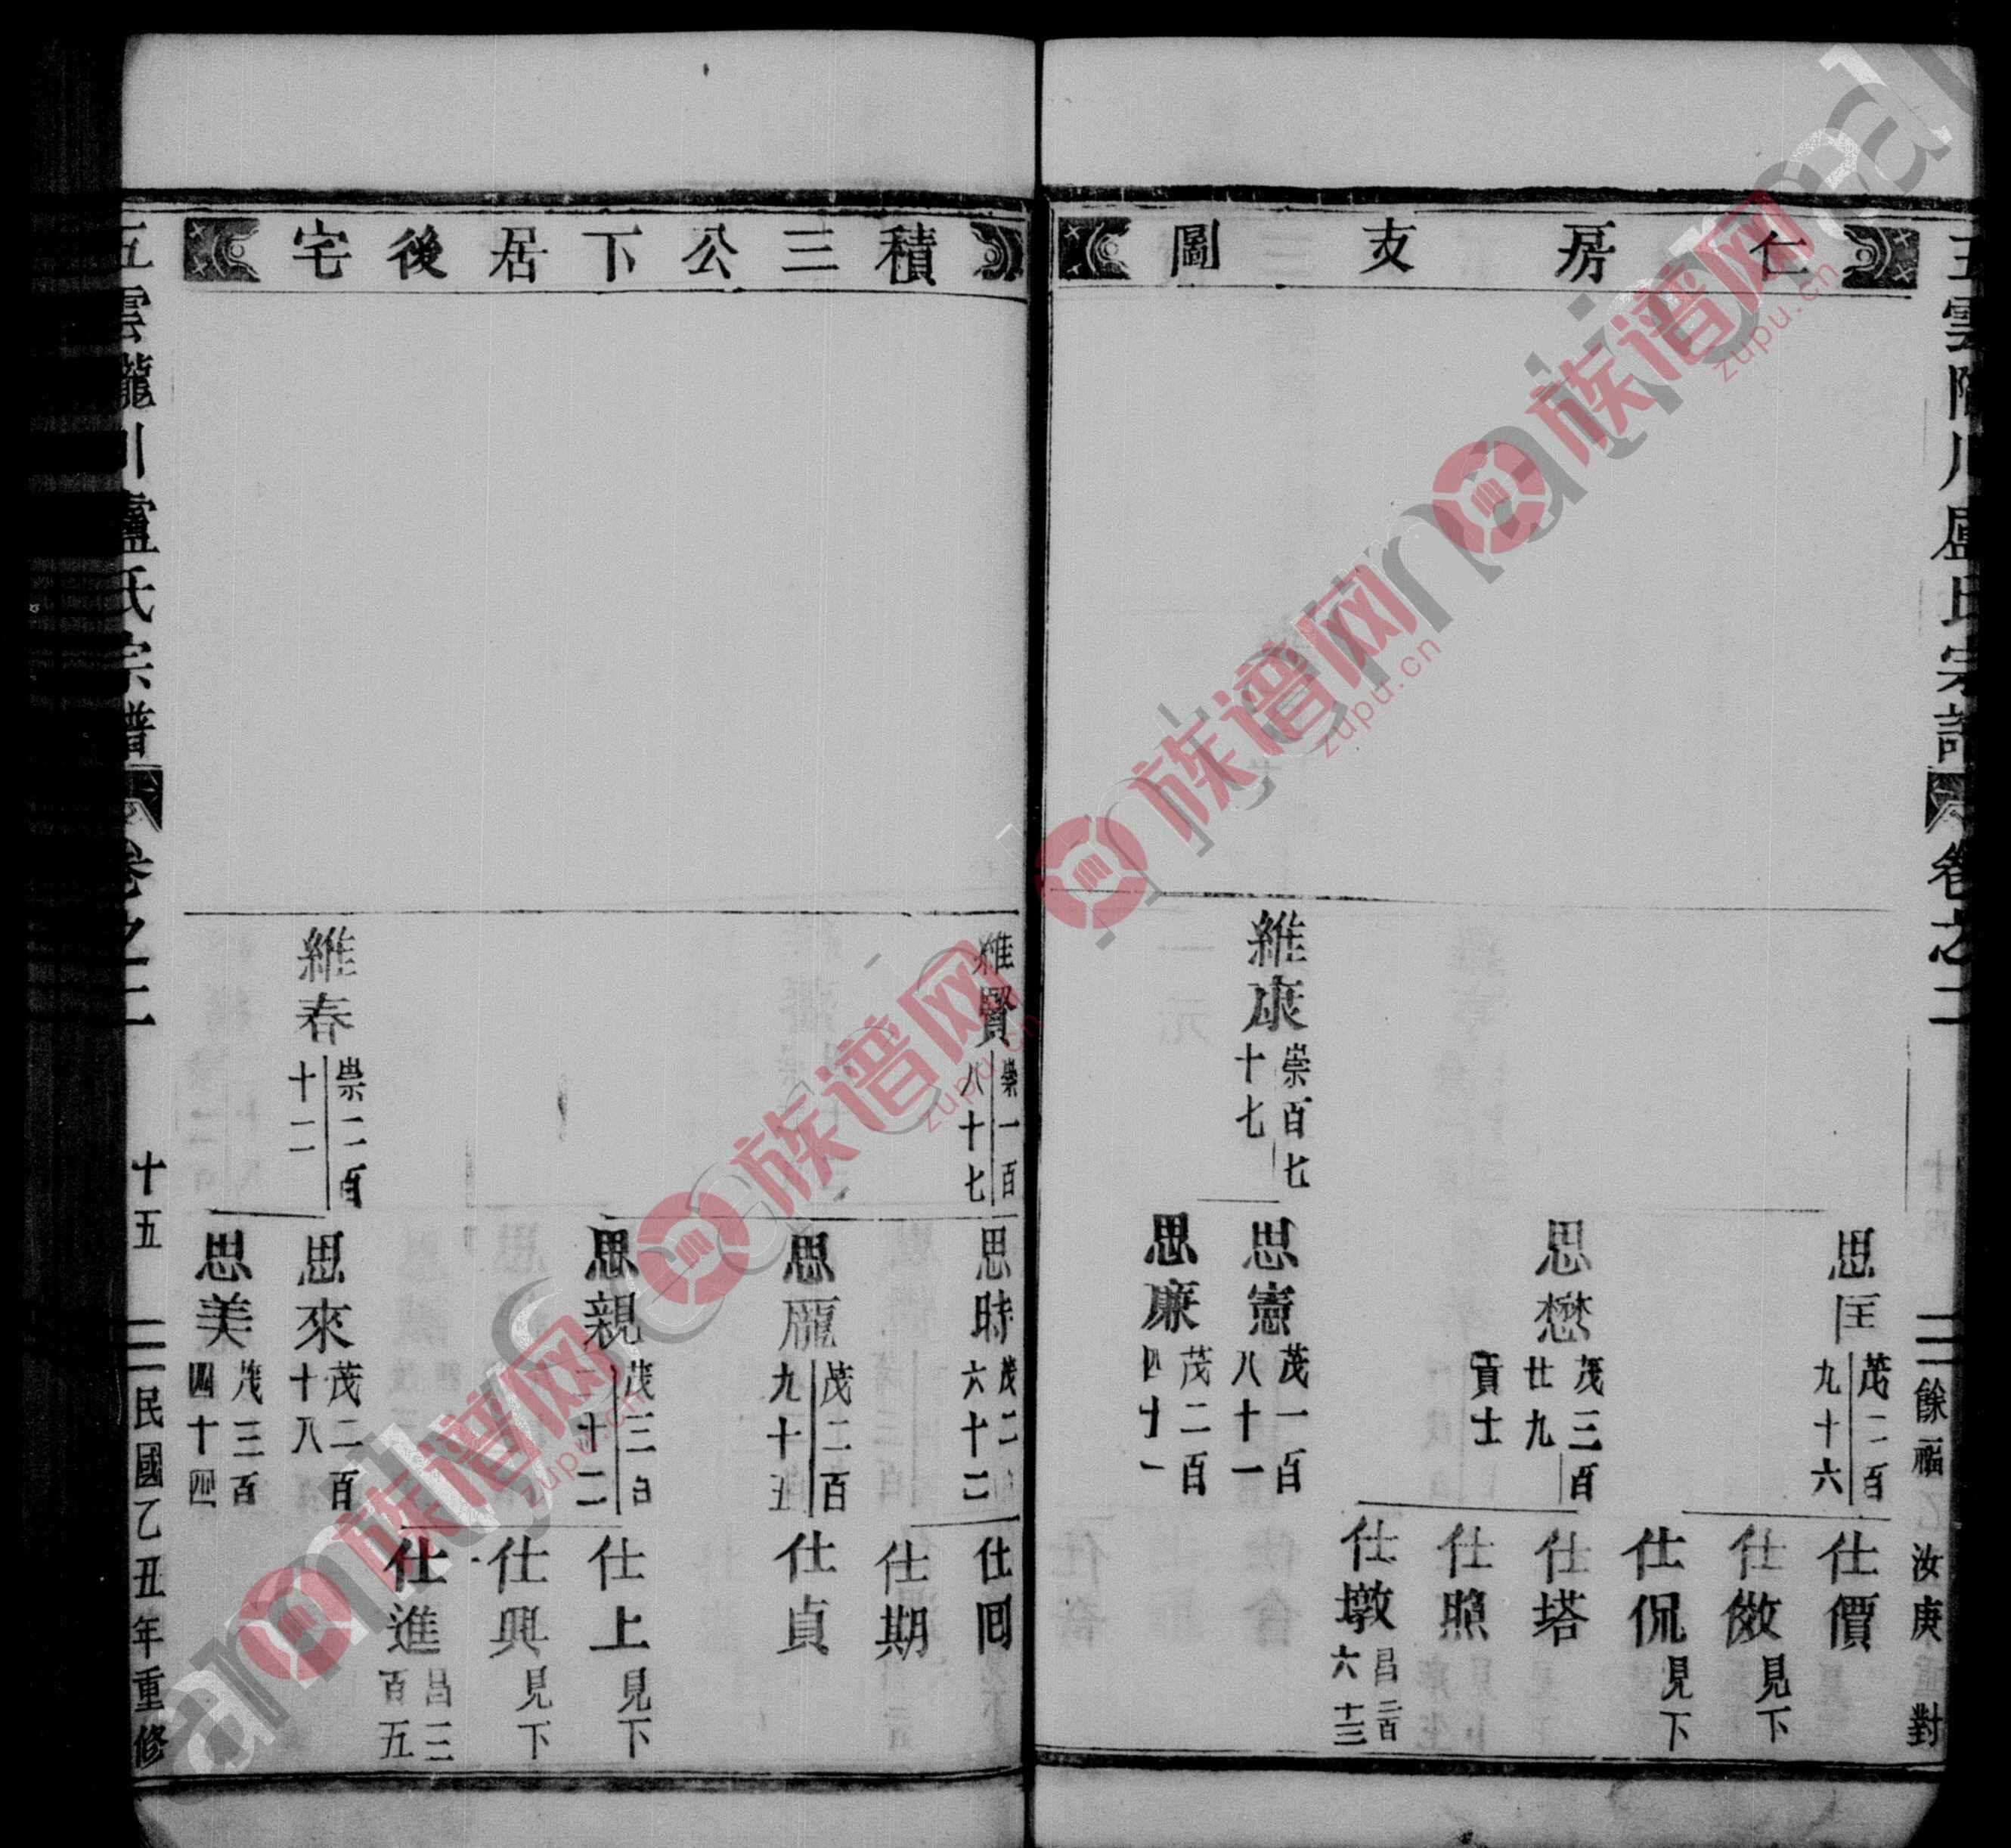 仁房支圖
維康 崇百七十七
思匡 茂二百九十六
思懋 茂三百廿九 貢士
思憲 茂一百八十一
思廉 茂二百四十一
仕價
仕儌 見下
仕侃 見下
仕塔
仕照
仕墩 昌二百六十三
五雲隴川盧氏宗譜 卷之二
餘福 汝庚 對
積三公下居後宅
維賢 崇一百八十七
維春 崇二百十二
思時 茂二百六十二
思龐 茂二百九十五
思親 茂三百二十二
思來 茂二百十八
思美 茂三百四十四
仕回
仕期
仕貞
仕上 見下
仕興 見下
仕進 昌三百五
五雲隴川盧氏宗譜 卷之二 十五 民國乙丑年重修
族谱网
zupu.cn
族谱网
zupu.cn
族谱网
zupu.cn
族谱网
zupu.cn